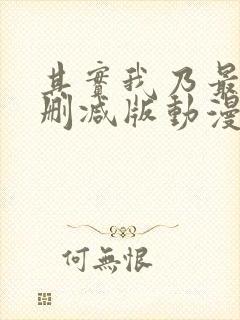 其實我乃最
刪減版動漫
何無恨